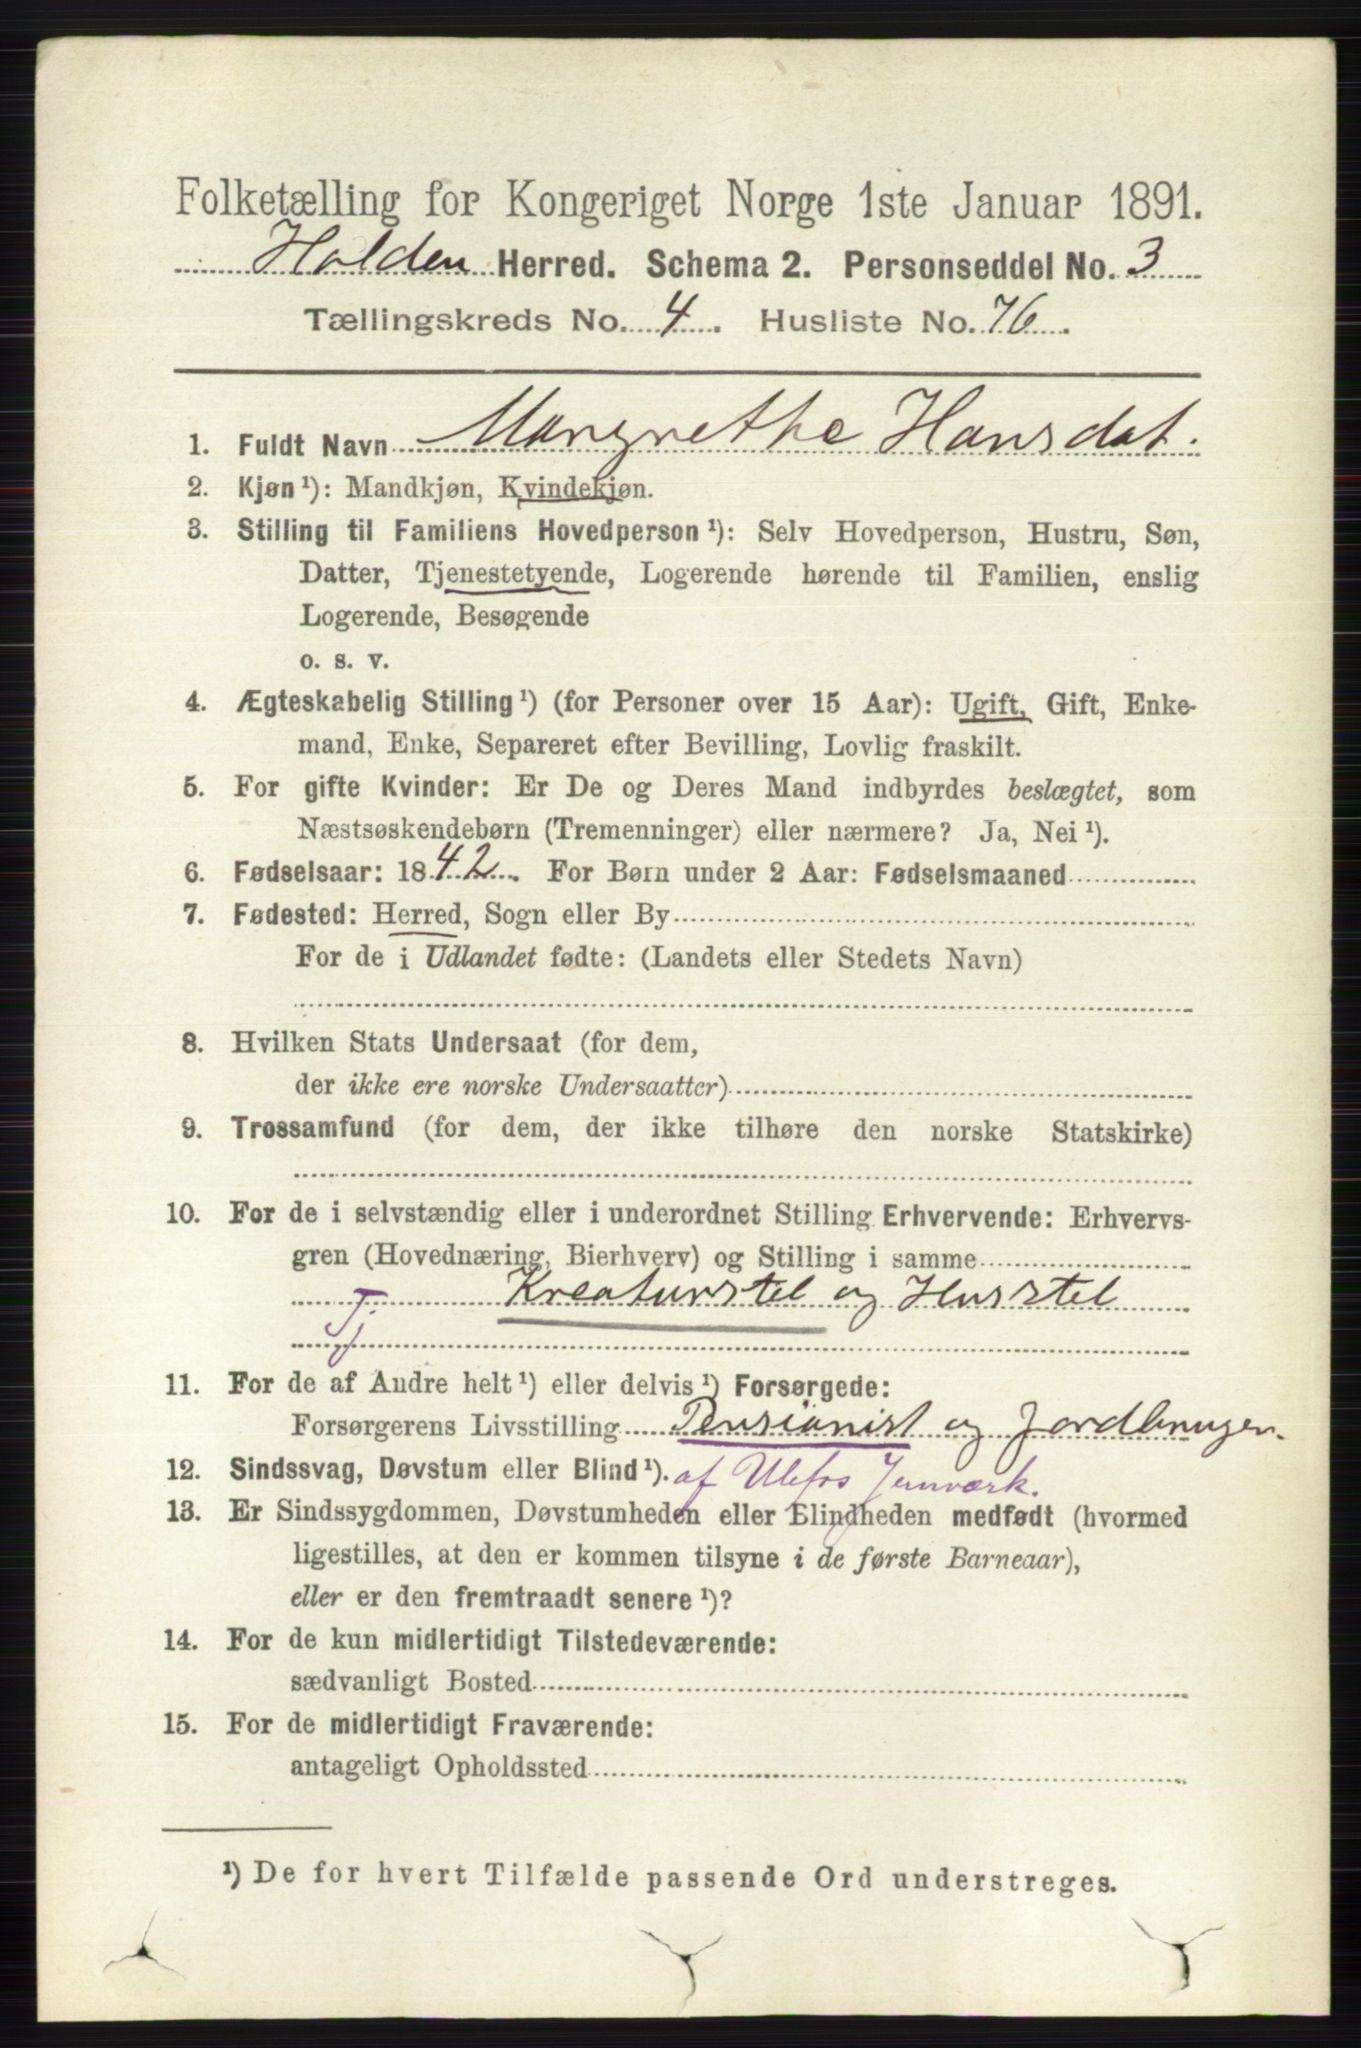 Folketælling for Kongeriget Norge 1ste Januar 1891.
Holden Herred. Schema 2. Personseddel No. 3
Tællingskreds No. 4. Husliste No. 76.
1. Fuldt Navn Margrethe Hansdat.
2. Kjøn ¹): Mandkjøn, Kvindekjøn.
3. Stilling til Familiens Hovedperson ¹): Selv Hovedperson, Hustru, Søn,
Datter, Tjenestetyende, Logerende hørende til Familien, enslig
Logerende, Besøgende
o. s. v.
4. Ægteskabelig Stilling ¹) (for Personer over 15 Aar): Ugift, Gift, Enke-
mand, Enke, Separeret efter Bevilling, Lovlig fraskilt.
5. For gifte Kvinder: Er De og Deres Mand indbyrdes beslægtet, som
Næstsøskendebørn (Tremenninger) eller nærmere? Ja, Nei ¹).
6. Fødselsaar: 1842. For Børn under 2 Aar: Fødselsmaaned
7. Fødested: Herred, Sogn eller By
For de i Udlandet fødte: (Landets eller Stedets Navn)
8. Hvilken Stats Undersaat (for dem,
der ikke ere norske Undersaatter)
9. Trossamfund (for dem, der ikke tilhøre den norske Statskirke)
10. For de i selvstændig eller i underordnet Stilling Erhvervende: Erhvervs-
gren (Hovednæring, Bierhverv) og Stilling i samme
Tj Kreaturstel og Husstel
11. For de af Andre helt ¹) eller delvis ¹) Forsørgede:
Forsørgerens Livsstilling Pensionist og Jordbruger.
12. Sindssvag, Døvstum eller Blind ¹). af Ulefos Jernværk.
13. Er Sindssygdommen, Døvstumheden eller Blindheden medfødt (hvormed
ligestilles, at den er kommen tilsyne i de første Barneaar),
eller er den fremtraadt senere ¹)?
14. For de kun midlertidigt Tilstedeværende:
sædvanligt Bosted
15. For de midlertidigt Fraværende:
antageligt Opholdssted
¹) De for hvert Tilfælde passende Ord understreges.